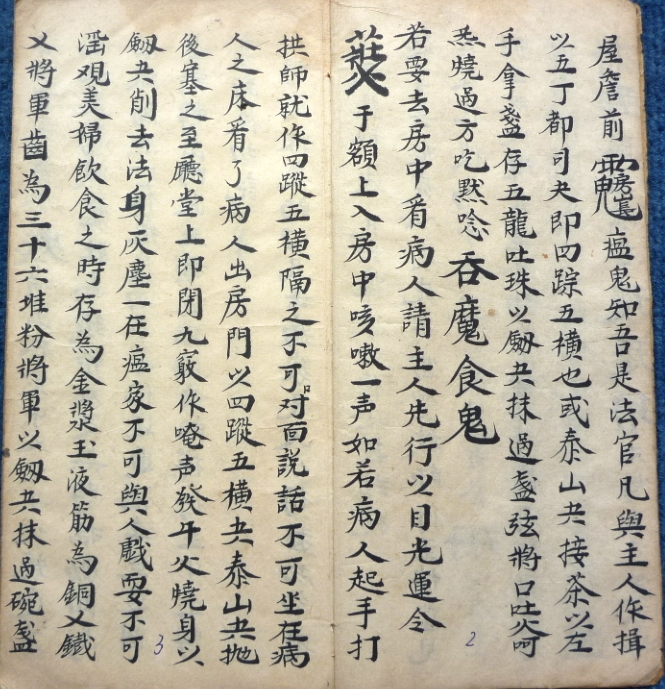 屋詹前魘瘟鬼知吾是法官凡與主人作揖
以五丁都司夬即四踪五橫也或泰山夬接茶以左
手拿盞存五龍吐珠以劒夬抹過盞弦將口吐火呵
炁燒過方吃黙唸吞魔食鬼
若要去房中看病人請主人先行以目光運令
于額上入房中咳嗽一声如若病人起手打
拱師就作四蹤五橫隔之不可对口面說話不可坐在病
人之床看了病人出房門以四蹤五橫夬泰山夬抛
後塞之至廳堂上即閉九竅作唵声發午火燒身以
劒夬削去法身灰塵一在瘟家不可與人戯耍不可
滛观美婦飲食之時存為金漿玉液筋為銅乂鐵
乂將軍齒為三十六堆粉將軍以劒夬抹過碗盞
2
3